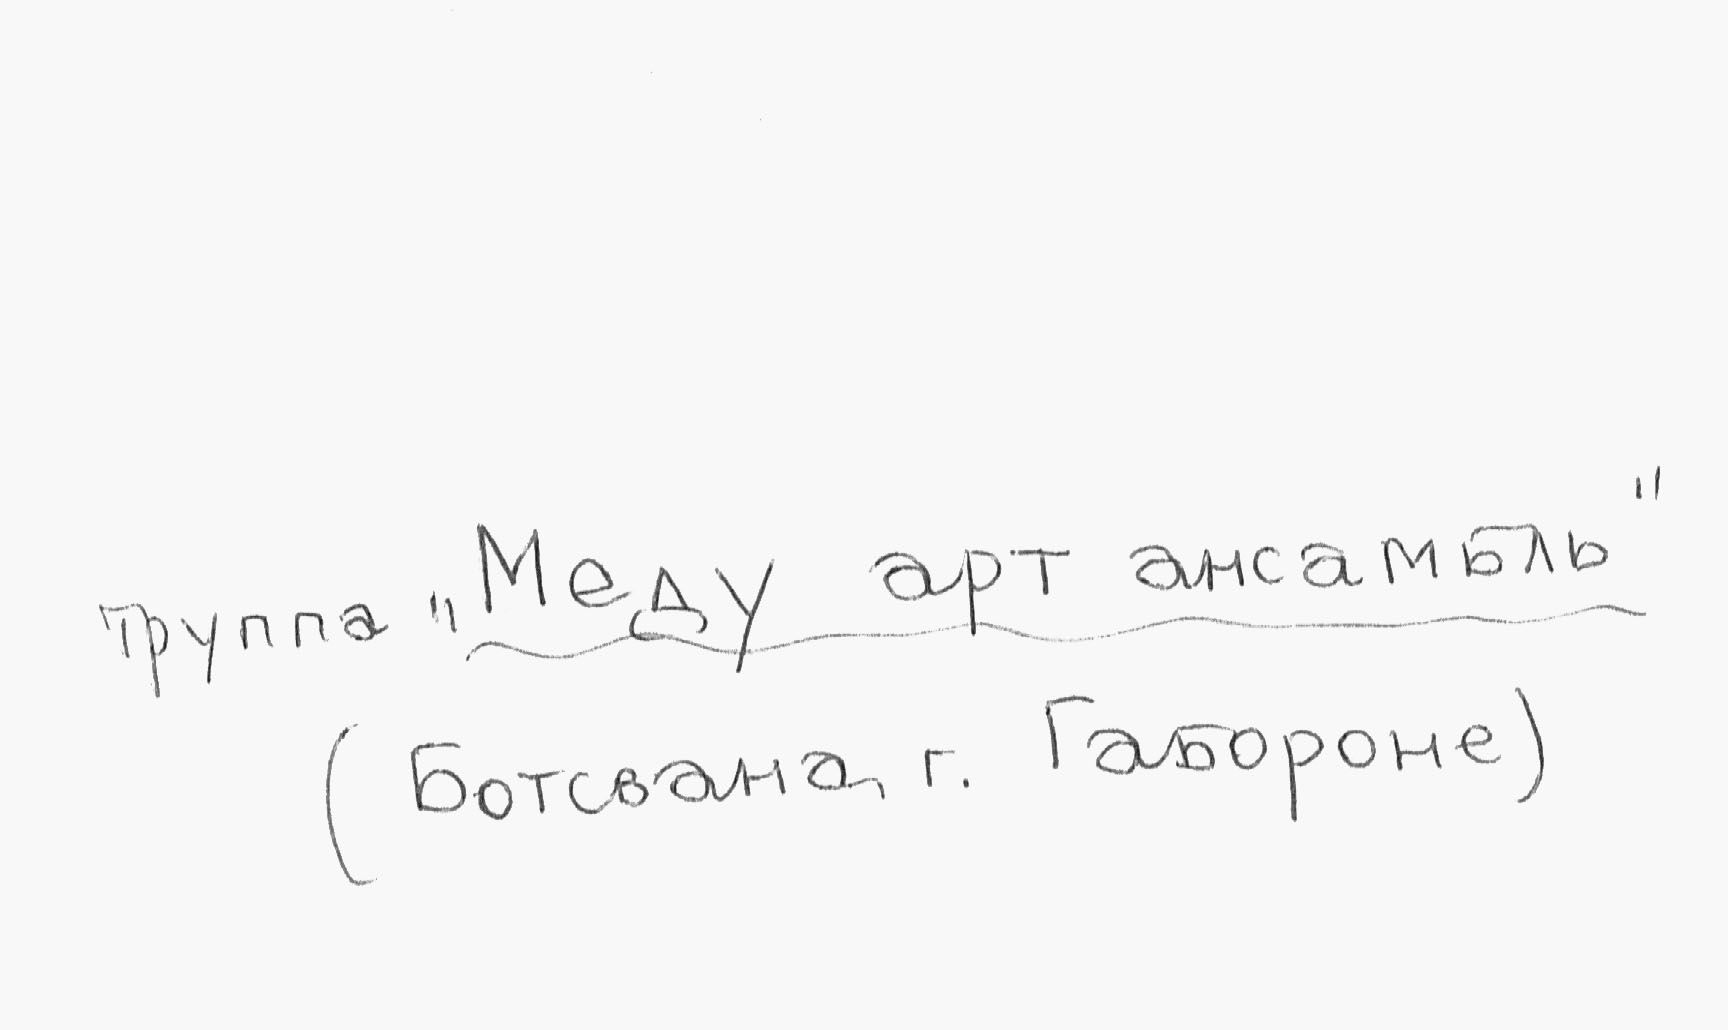 труппа "Меду арт ансамбль"
(Ботсвана, г. Габороне)